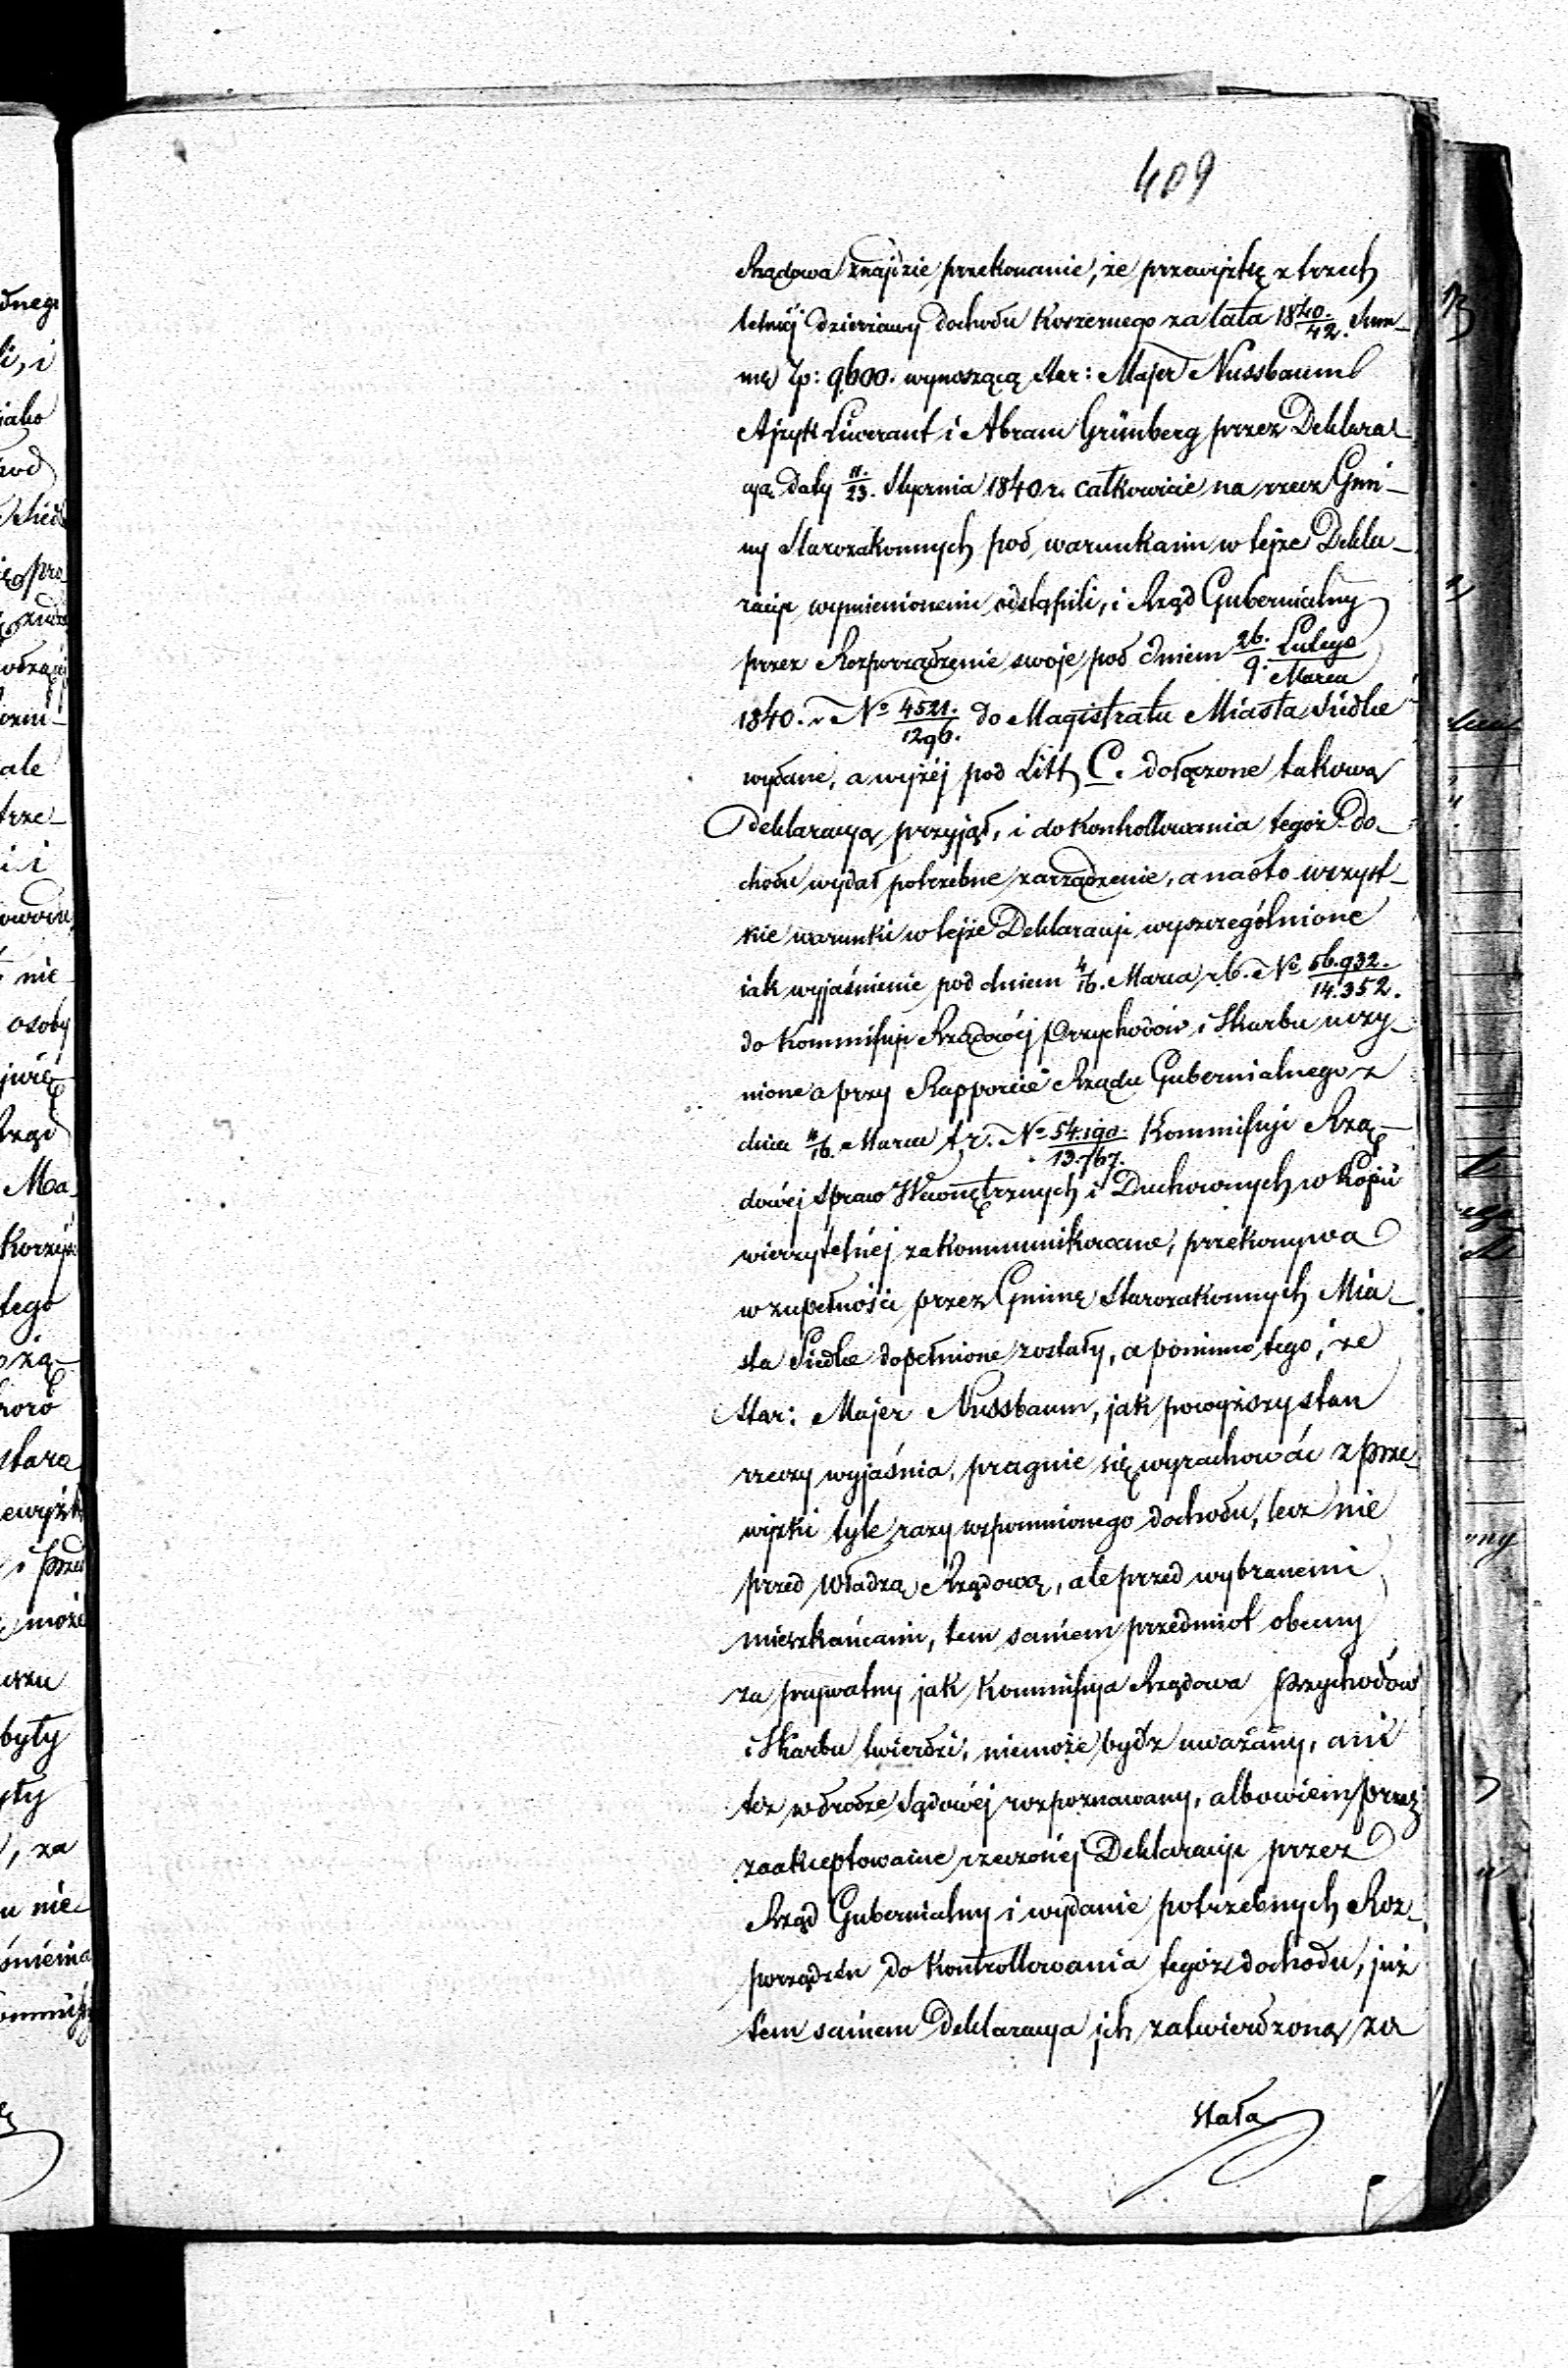 409
Rządowa znajdzie przekonanie, że przewyżkę z trzech
letniéj dzierżawy dochodu Koszernego za lata 18 40./42. Sum-
mę Zp: 9600. wynoszącą Star: Majer Nussbaum
Ajzyk Liwerant i Abram Grünberg przez Deklara-
cyą daty 11./23. Stycznia 1840 r. całkowicie na rzecz Gmi-
ny Starozakonnych pod warunkami w tejże Dekla-
racyi wymienionemi odstąpili, i Rząd Gubernialny
przez Rozporządzenie swoje pod dniem 26. Lutego/9. Marca
1840. r. No 4521./1296. do Magistratu Miasta Siedlce
wydane, a wyżéj pod Litt C. dołączone takową
Deklaracyą przyjął, i do Kontrollowania tegoż do-
chodu wydał potrzebne zarządzenie, a nadto wszyst-
kie warunki w tejże Deklaracyi wyszczególnione
iak wyjaśnienie pod dniem 4/16. Marca r. b. No 56.932./14.352.
do Kommissyi Rządowéj Przychodów i Skarbu uczy-
nione a przy Rapporcie Rządu Gubernialnego z
dnia 4/16. Marca t. r. No 54.190./13.767. Kommissyi Rzą-
dowéj Spraw Wewnętrznych i Duchownych w Kopii
wierzytelnéj zakommunikowane, przekonywa
w zupełności przez Gminę Starozakonnych Mia-
sta Siedlce dopełnione zostały, a pomimo tego, że
Star: Majer Nussbaum, jak powyższy stan
rzeczy wyjaśnia, pragnie się wyrachować z prze-
wyżki tyle razy wspomnionego dochodu, lecz nie
przed Władzą Rządową, ale przed wybranemi
mieszkańcami, tem samem przedmiot obecny
za prywatny jak Kommissya Rządowa Przychodów
i Skarbu twierdzi, niemoże bydź uważany, ani
też w drodze Sądowéj rozpoznawany, albowiem przez
zaakceptowanie rzeczonéj Deklaracyi przez
Rząd Gubernialny i wydanie potrzebnych Roz-
porządzeń do Kontrollowania tegoż dochodu, już
tem samem Deklaracya ich zatwierdzoną zo
stała